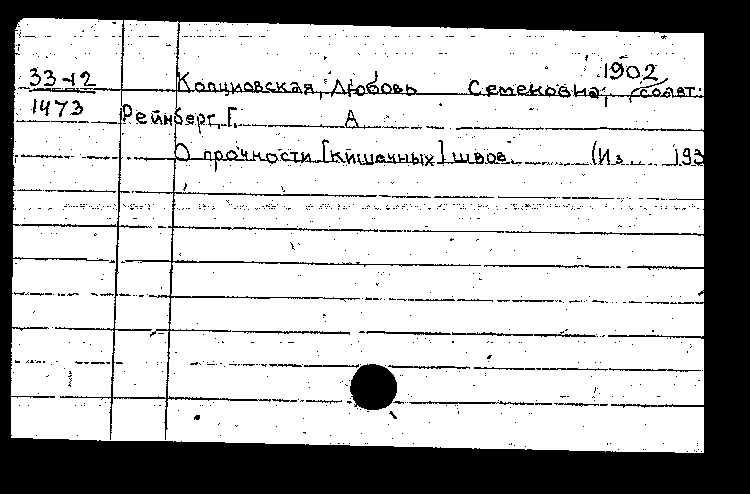 1902
33-12 Копциовская, Любовь Семеновна, соавт.
1473 Рейнберг, Г. А
О прочности [кишечных] швов. (Из. 193